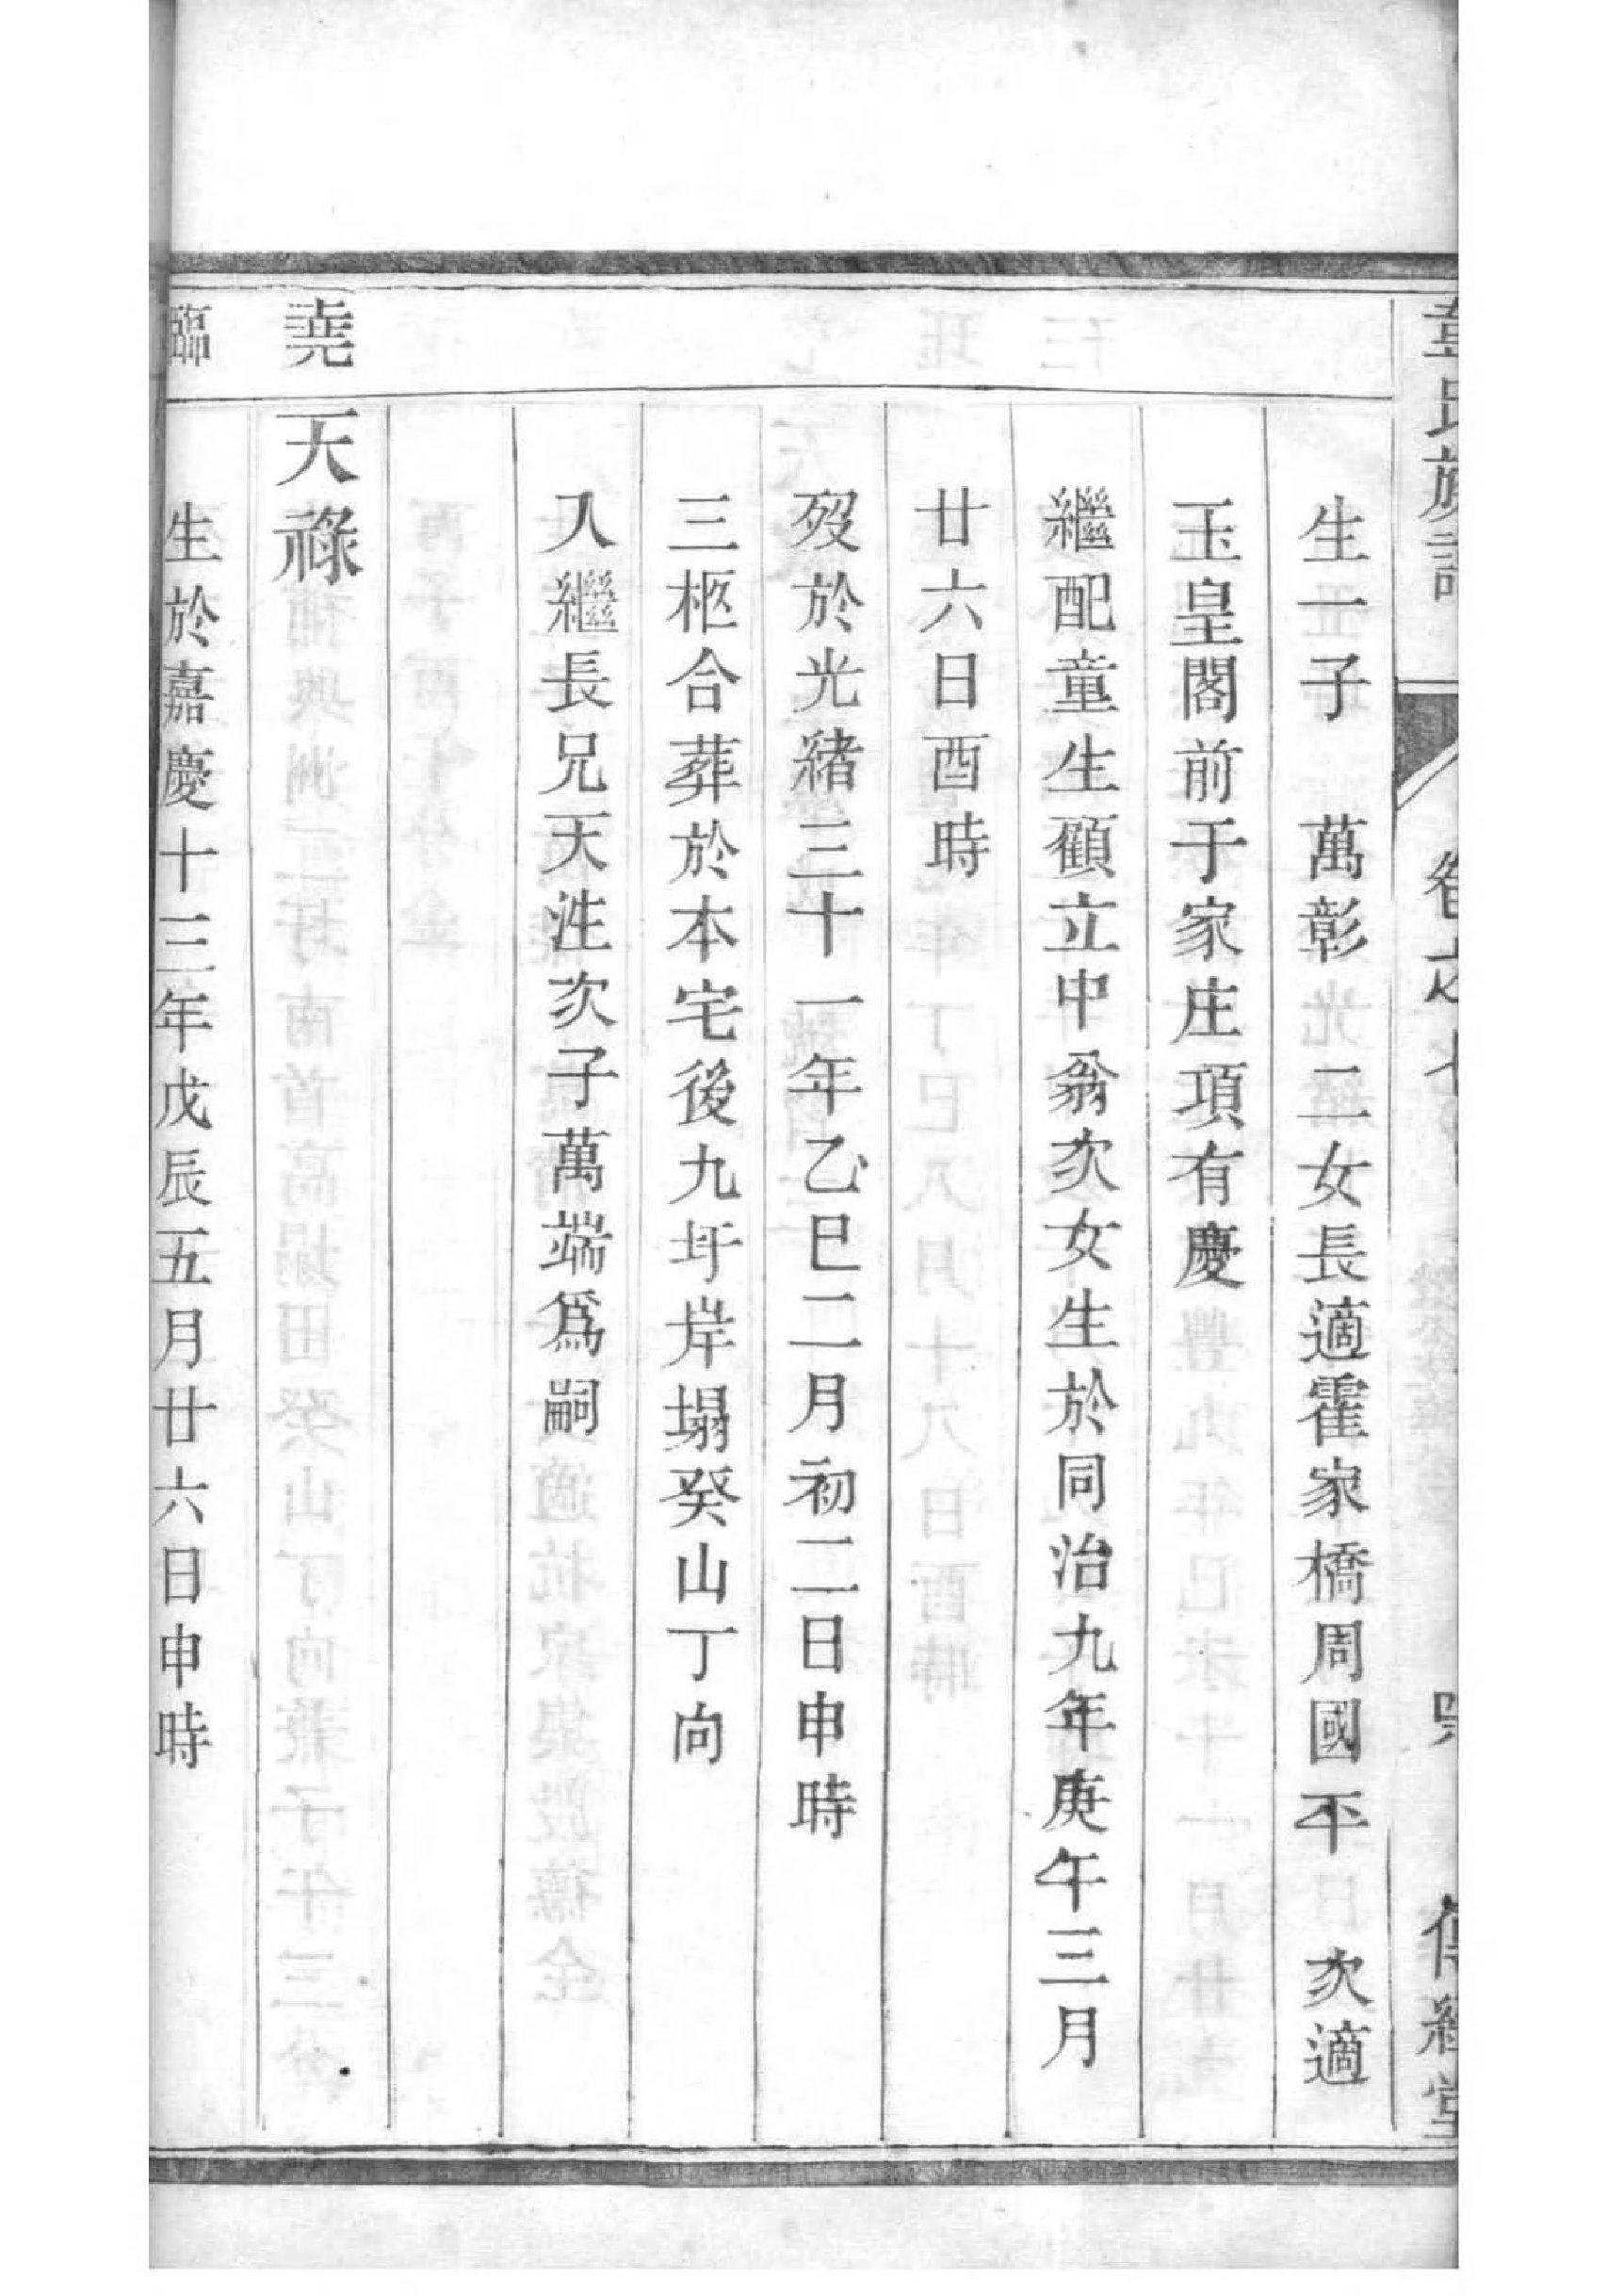 氏族譜
生一子　萬彰　二女長適霍家橋周國平　次適
玉皇閣前于家庄項有慶
繼配童生顧立中翁次女生於同治九年庚午三月
廿六日酉時
歿於光緒三十一年乙巳二月初二日申時
三柩合葬於本宅後九圩岸塌癸山丁向
入繼長兄天泩次子萬端為嗣
堯
天祿
臨
生於嘉慶十三年戊辰五月廿六日申時